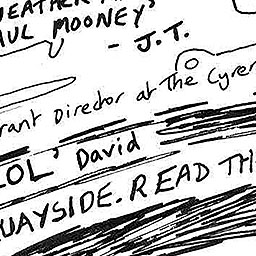 AUL MOONEYS
- J.T.
rant Director at The Cyren
LOL' David
QUAYSIDE. READ TH